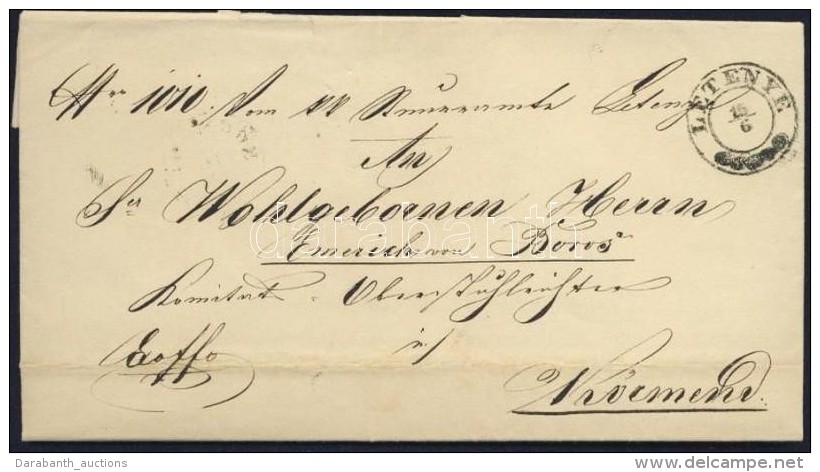 Nro 1010. Vom kk Steueramte Letenye
LETENYE
15/6
An
Sr Wohlgebornen Herrn
Emerich von Boros
Komitat - Oberstuhlrichter
in
Körmend.
darabanth
Darabanth_auctions
http://www.delcampe.net